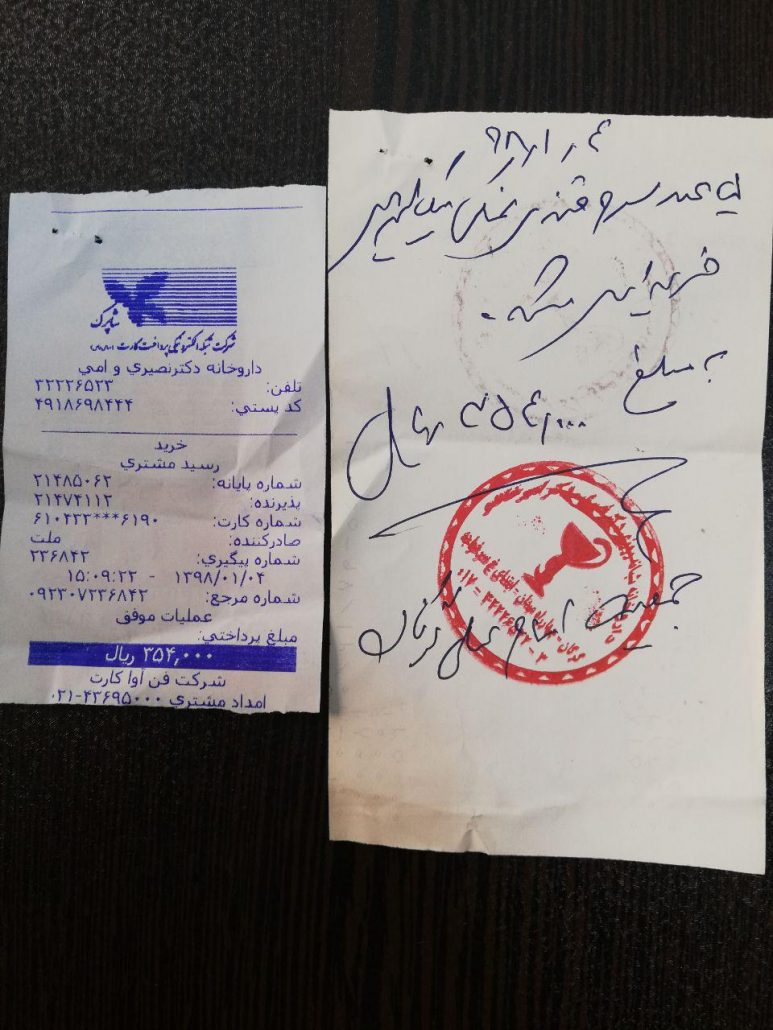 شاپرک
شرکت شبکه الکترونیکی پرداخت کارت
داروخانه دکترنصیري و امي
تلفن: ۳۲۲۲۶۵۲۳
کد پستي: ۴۹۱۸۶۹۸۴۴۴
خرید
رسید مشتري
شماره پایانه: ۲۱۴۸۵۰۶۲
پذیرنده: ۲۱۴۷۴۱۱۲
شماره کارت: ۶۱۰۴۳۳***۶۱۹۰
صادرکننده: ملت
شماره پیگیري: ۲۳۶۸۴۲
۱۳۹۸/۰۱/۰۴ - ۱۵:۰۹:۲۲
شماره مرجع: ۰۹۲۳۰۷۲۳۶۸۴۲
عملیات موفق
مبلغ پرداختي:
۳۵۴,۰۰۰ ریال
شرکت فن آوا کارت
امداد مشتري ۰۲۱-۴۳۶۹۵۰۰۰
۹۸/۱/۴
عدد سرم قندی نمکی
خریداری شد.
به مبلغ
۳۵۴,۰۰۰ ریال
جمعیت امام علی گرگان